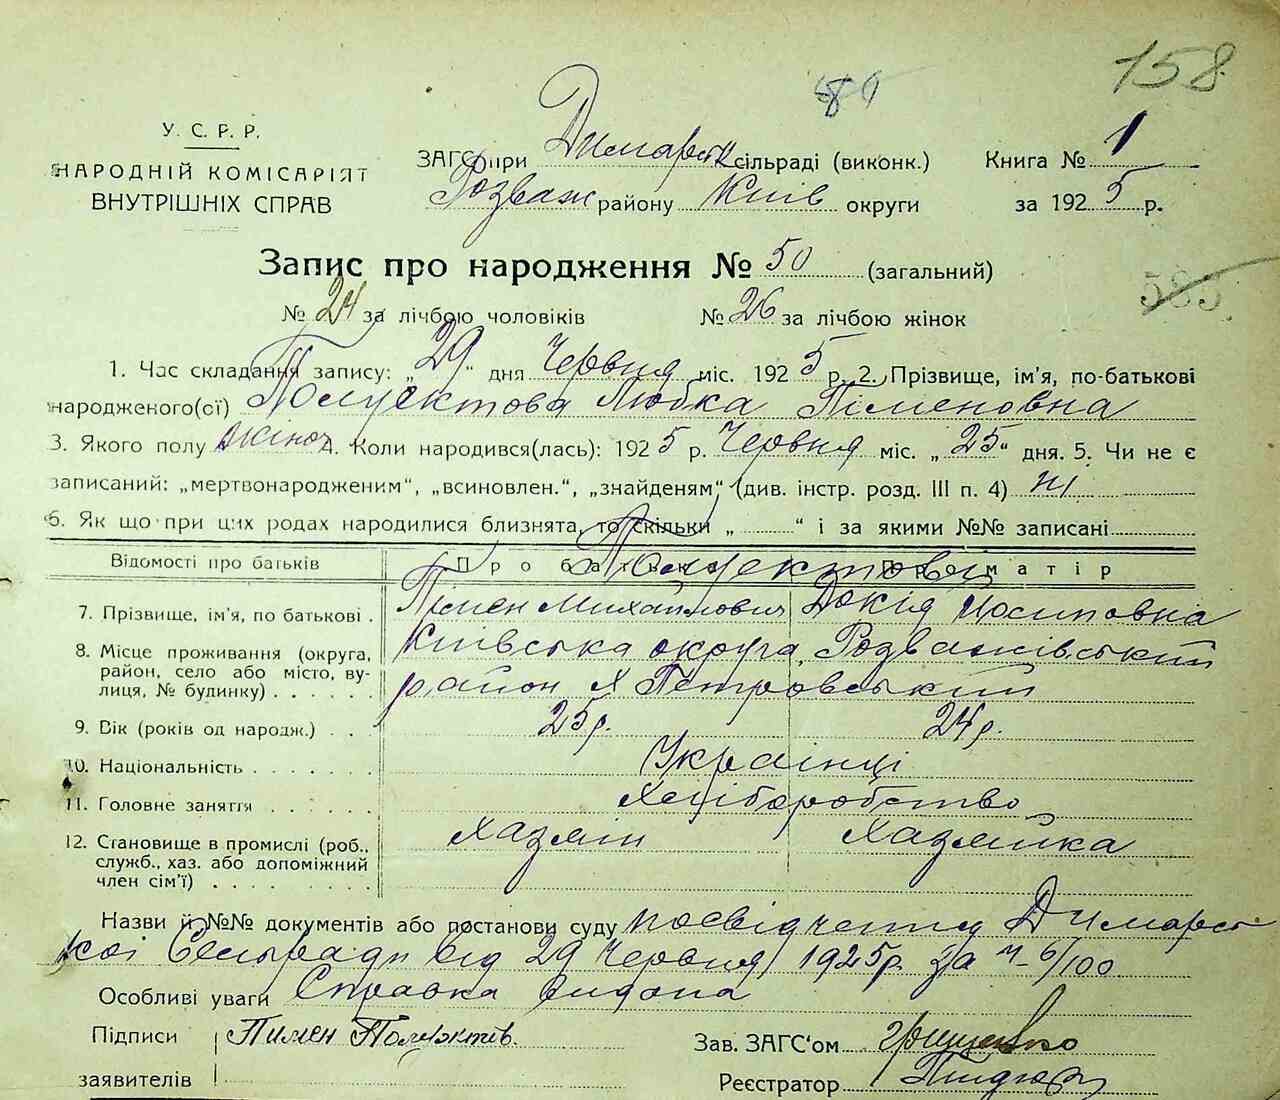 158
У. С. Р. Р.
НАРОДНІЙ КОМІСАРІЯТ
ВНУТРІШНІХ СПРАВ
ЗАГС при Димарськ сільраді (виконк.) Книга № 1
Розваж району Київ округи за 1925 р.
Запис про народження № 50 (загальний)
585
№ 24 за лічбою чоловіків № 26 за лічбою жінок
1. Час складання запису: „29" дня Червня міс. 1925 р. 2. Прізвище, ім'я, по-батькові
народженого(ої) Полуектова Любка Піменовна
3. Якого полу жіноч 4. Коли народився(лась): 1925 р. Червня міс. „25" дня. 5. Чи не є
записаний: „мертвонародженим", „всиновлен.", „знайденям" (див. інстр. розд. III п. 4) ні
6. Як що при цих родах народилися близнята, то скільки „ " і за якими №№ записані
Відомості про батьків Про батька Про матір
Полуектови
7. Прізвище, ім'я, по батькові Пімен Михайлович Докія Иосиповна
8. Місце проживання (округа, район, село або місто, вулиця, № будинку) Київська округа, Розважівський
район х Петровський
9. Вік (років од народж.) 25р. 24р.
10. Національність Українці
11. Головне заняття Хліборобство
12. Становище в промислі (роб., служб., хаз. або допоміжний член сім'ї) Хазяїн Хазяйка
Назви й №№ документів або постанови суду посвідчення Димарсь
кої Сельради від 29 Червня 1925р. за Ч-6/100
Особливі уваги Справка видана
Підписи Пимен Полуэктів. Зав. ЗАГС'ом Грищенко
заявителів Реєстратор